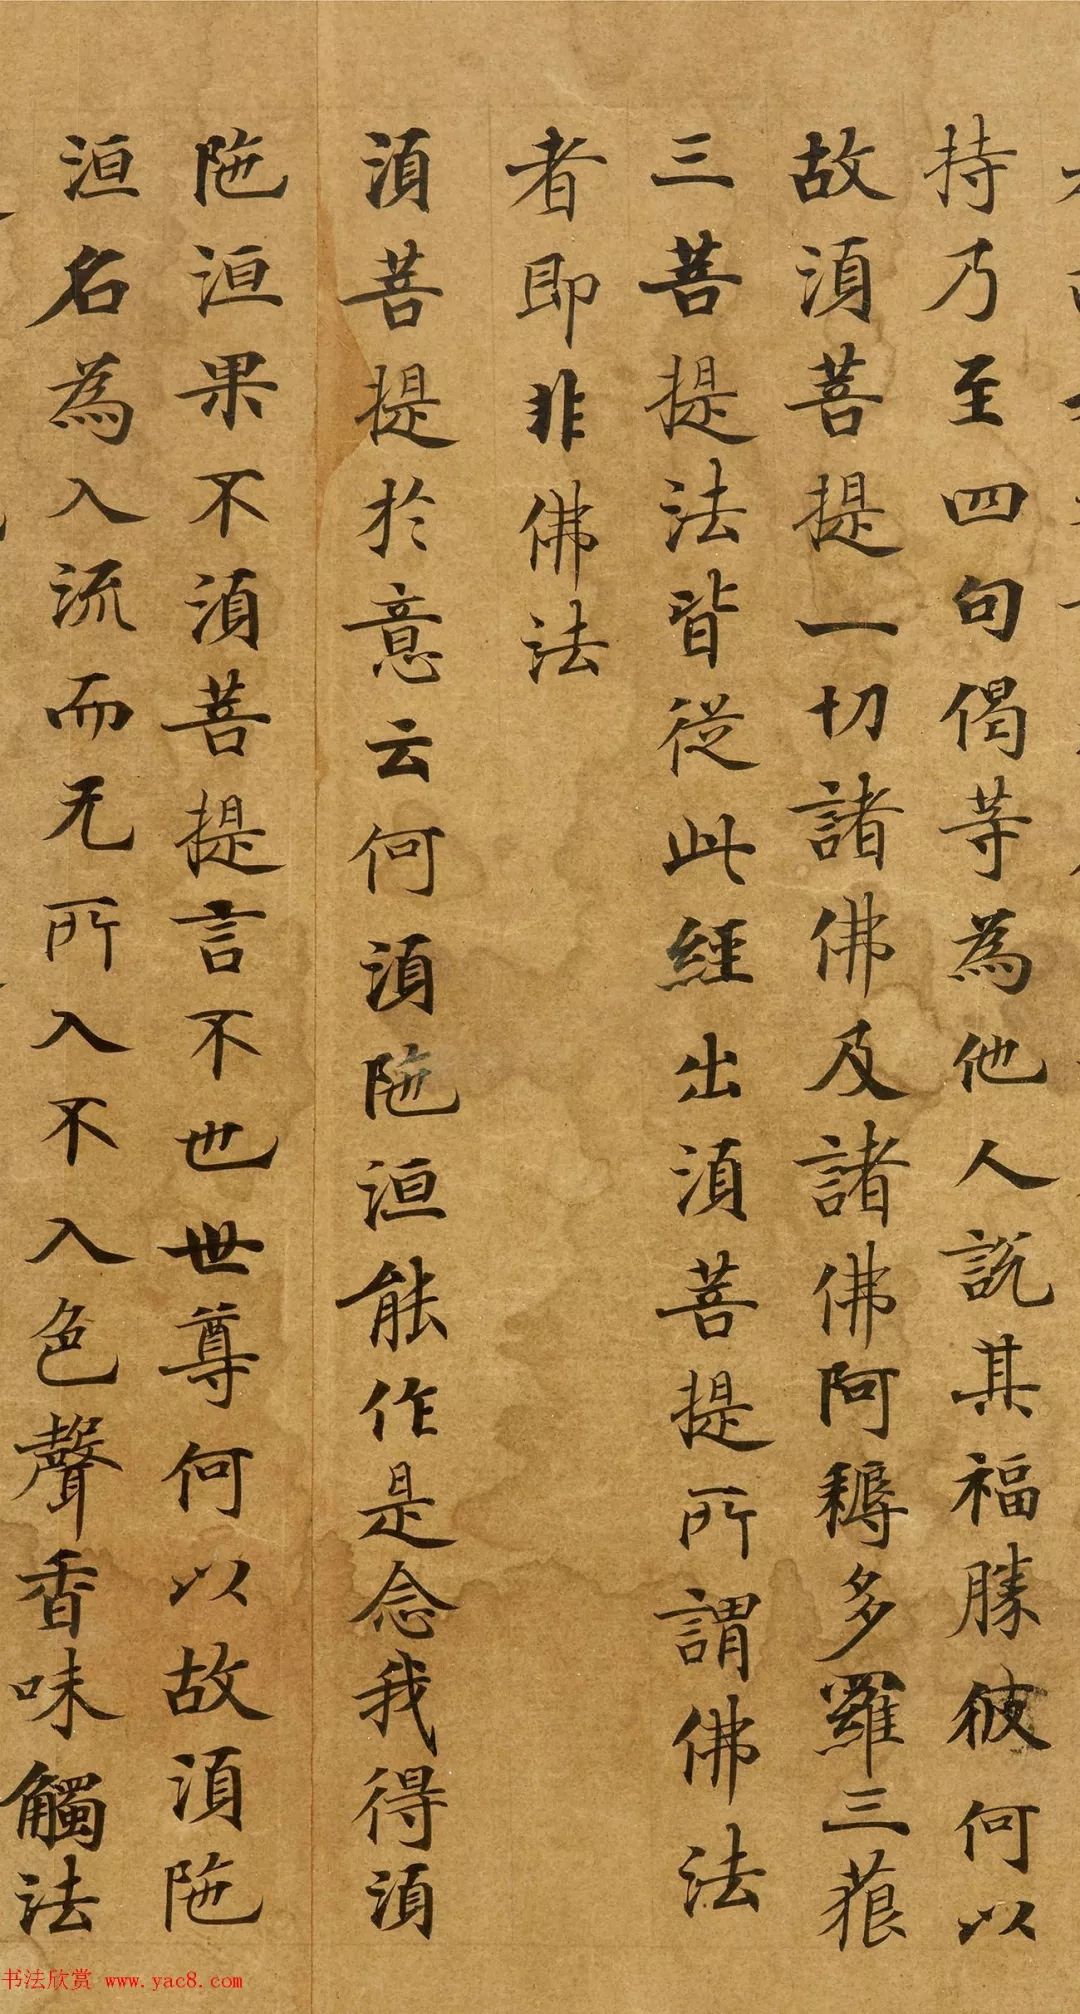 持乃至四句偈等為他人說其福勝彼何以
故須菩提一切諸佛及諸佛阿耨多羅三藐
三菩提法皆從此經出須菩提所謂佛法
者即非佛法
須菩提於意云何須陁洹能作是念我得須
陁洹果不須菩提言不也世尊何以故須陁
洹名為入流而无所入不入色聲香味觸法
书法欣赏 www.yac8.com